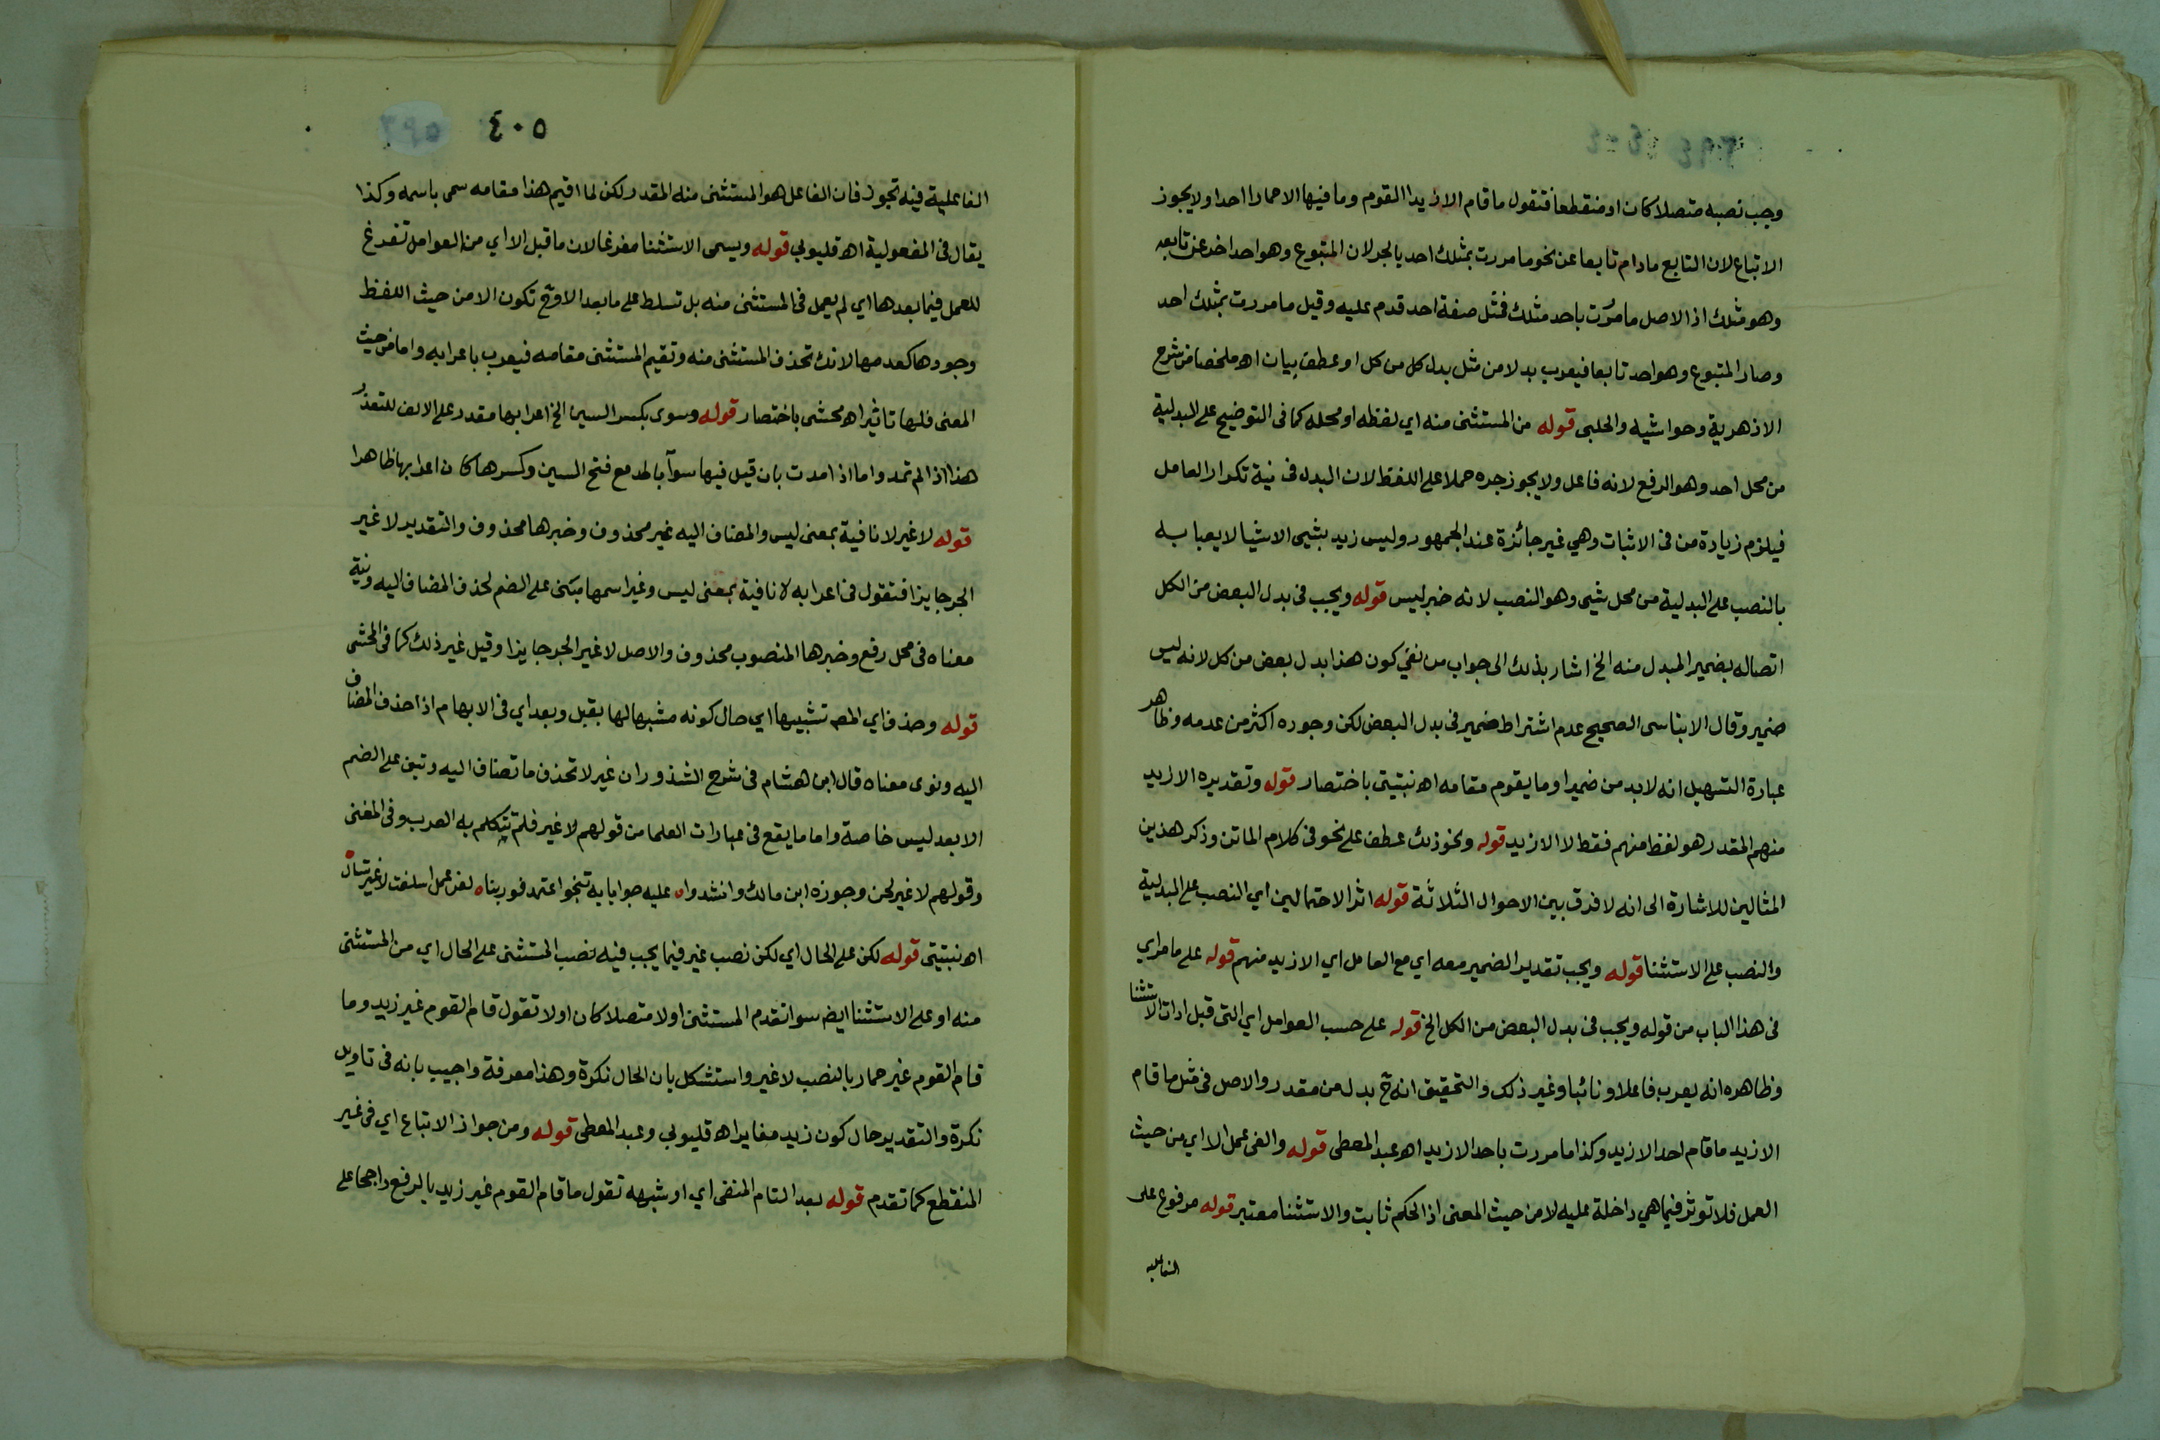 وجب نصبه متصلا كان او منقطعا فتقول ما قام الا زيدا القوم وما فيها الا حمارا احد ولا يجوز
الاتباع لان التابع مادام تابعا عن نحو ما مررت بمثلك احد بالجر لان المتبوع وهو احد اخر عن تابعه
وهو مثلك اذ الاصل ما مررت باحد مثلك فمثل صفة احد قدم عليه وقيل ما مررت بمثلك احد
وصار المتبوع وهو احد تابعا فيعرب بدلا من مثل بدل كل من كل او عطف بيان اهـ ملخصا من شرح
الازهرية وحواشيه والحلبى قوله من المستثنى منه اي لفظه او محله كما فى التوضيح على البدلية
من محل احد وهو الرفع لانه فاعل ولا يجوز جره حملا على اللفظ لان البدل فى نية تكرار العامل
فيلزم زيادة من فى الاثبات وهي غير جائزة عند الجمهور وليس زيد بشيى الا شيا لا يعبا به
بالنصب على البدلية من محل شيى وهو النصب لانه خبر ليس قوله ويجب فى بدل البعض من الكل
اتصاله بضمير المبدل منه الخ اشار بذلك الى جواب من نفي كون هذا بدل بعض من كل لانه ليس
ضمير وقال الابناسى الصحيح عدم اشتراط ضمير فى بدل البعض لكن وجوده اكثر من عدمه وظاهر
عبارة التسهيل انه لا بد من ضمير او ما يقوم مقامه اهـ نبتيتى باختصار قوله وتقديره الا زيد
منهم المقدر هو لفظ منهم فقط لا الا زيد قوله ونحو ذلك عطف على نحو فى كلام الماتن وذكر هذين
المثالين للاشارة الى انه لا فرق بين الاحوال الثلاثة قوله اثر الاحتمالين اي النصب على البدلية
والنصب على الاستثنا قوله ويجب تقدير الضمير معه اي مع العامل اي الا زيد منهم قوله على ما مر اي
فى هذا الباب من قوله ويجب فى بدل البعض من الكل الخ قوله على حسب العوامل اي التى قبل ادات الاستثنا
وظاهره انه يعرب فاعلا او نائبا وغير ذلك والتحقيق انه ح بدل من مقدر والاصل فى مثل ما قام
الا زيد ما قام احد الا زيد وكذا ما مررت باحد الا زيد اهـ عبد المعطى قوله والغى عمل الا اي من حيث
العمل فلا توثر فيما هي داخلة عليه لا من حيث المعنى اذ الحكم ثابت والاستثنا معتبر قوله مرفوع على
الفاعلية
٤٠٥
الفاعلية فيه تجوز فان الفاعل هو المستثنى منه المقدر لكن لما اقيم هذا مقامه سمى باسمه وكذا
يقال فى المفعولية اهـ قليوبي قوله ويسمى الاستثنا مفرغا لان ما قبل الا اي من العوامل تفرغ
للعمل فيما بعدها اي لم يعمل فى المستثنى منه بل تسلط على ما بعد الا وح تكون الا من حيث اللفظ
وجودها كعدمها لانك تحذف المستثنى منه وتقيم المستثنى مقامه فيعرب باعرابه واما من حيث
المعنى فلها تاثير اهـ محشى باختصار قوله وسوى بكسر السين الخ اعرابها مقدر على الالف للتعذر
هذا اذا لم تمد واما اذا مدت بان قيل فيها سوآ بالمد مع فتح السين وكسرها كان اعرابها ظاهرا
قوله لا غير لا نافية بمعنى ليس والمضاف اليه غير محذوف وخبرها محذوف والتقدير لا غير
الجر جايزا فتقول فى اعرابه لا نافية بمعنى ليس وغير اسمها مبنى على الضم لحذف المضاف اليه ونية
معناه فى محل رفع وخبرها المنصوب محذوف والاصل لا غير الجر جايزا وقيل غير ذلك كما فى المحشى
قوله وحذف اي المص تشبيها اي حال كونه مشبها لها بقبل وبعد اي فى الابهام اذا حذف المضاف
اليه ونوى معناه قال ابن هشام فى شرح الشذور ان غير لا تحذف ما تضاف اليه وتبنى على الضم
الا بعد ليس خاصة واما ما يقع فى عبارات العلما من قولهم لا غير فلم تتكلم به العرب وفى المغنى
وقولهم لا غير لحن وجوزه ابن مالك وانشدوا ه عليه جوابا به تنجو اعتمد فوربنا ه لعن عمل اسلفت لا غير تسال
اهـ نبتيتى قوله لكن على الحال اي لكن نصب غير فيما يجب فيه نصب المستثنى على الحال اي من المستثنى
منه او على الاستثنا ايضا سوا تقدم المستثنى اولا متصلا كان اولا تقول قام القوم غير زيد وما
قام القوم غير حمار بالنصب لا غير واستشكل بان الحال نكرة وهذا معرفة واجيب بانه فى تاويل
نكرة والتقدير حال كون زيد مغايرا اهـ قليوبي وعبد المعطى قوله ومن جواز الاتباع اي فى غير
المنقطع كما تقدم قوله بعد التام المنفى اي او شبهه تقول ما قام القوم غير زيد بالرفع راجحا على